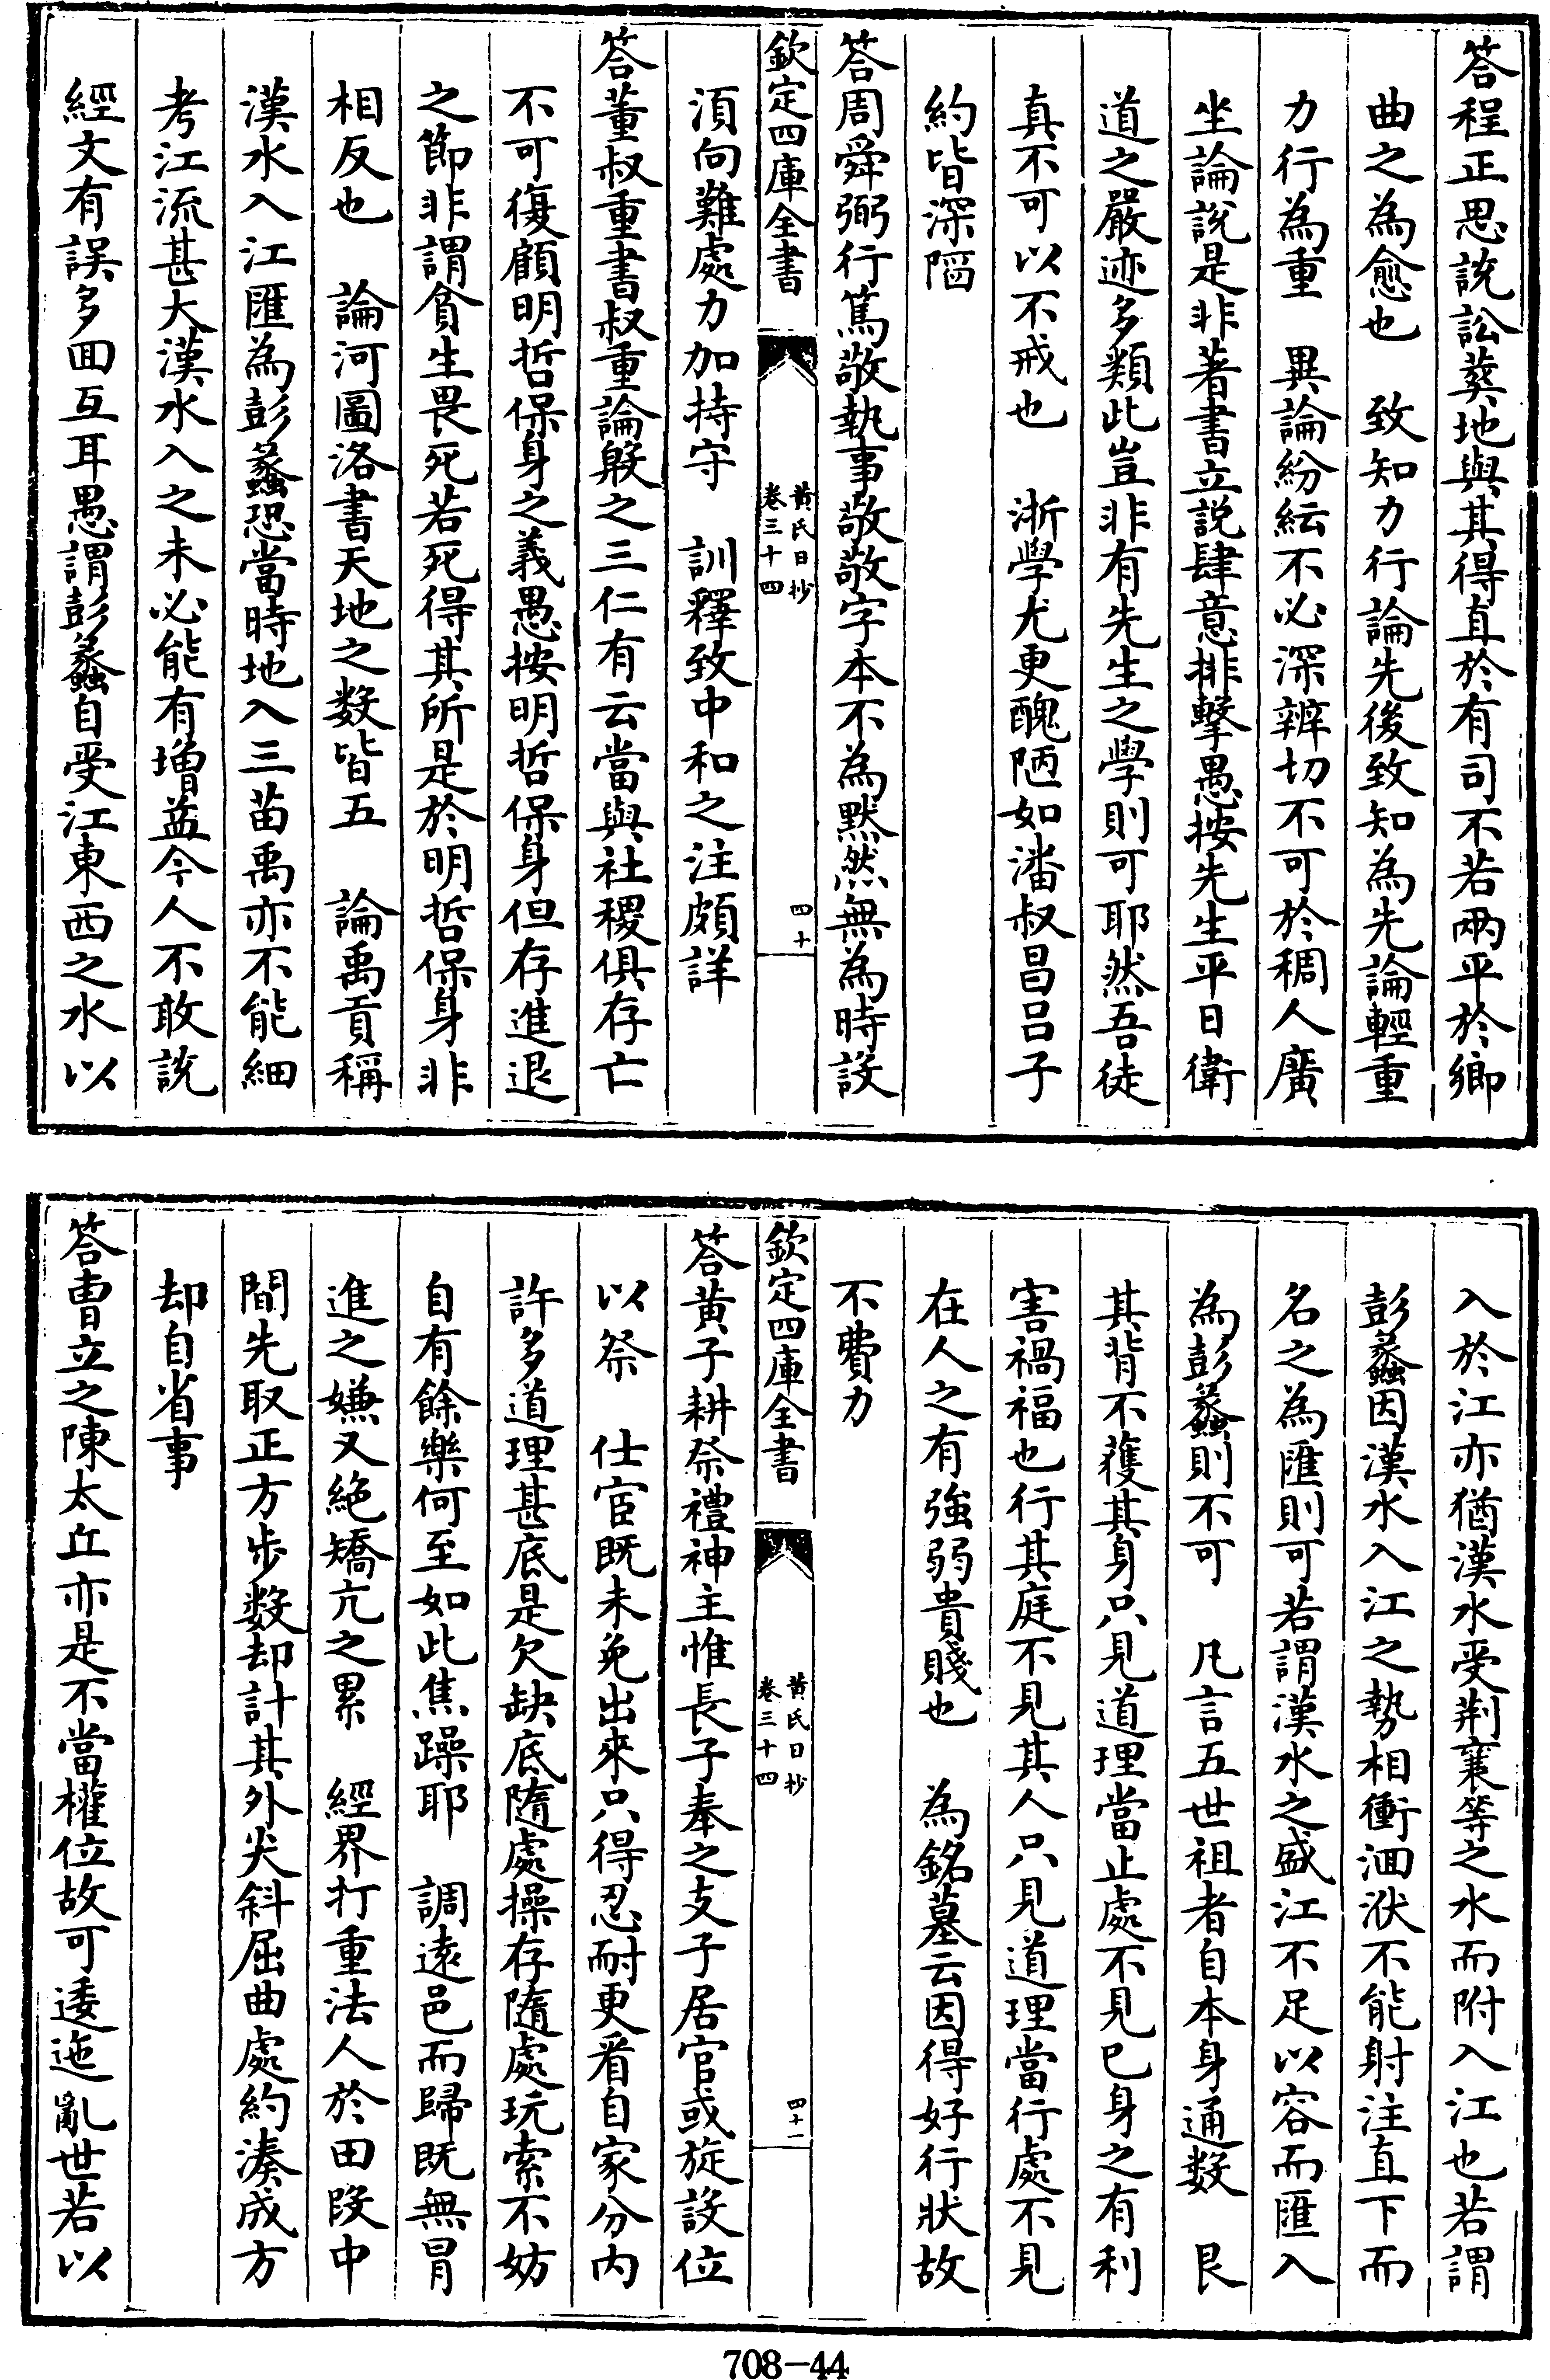 答程正思說訟葬地與其得直於有司不若兩平於鄉
曲之為愈也　致知力行論先後致知為先論輕重
力行為重　異論紛紜不必深辨切不可於稠人廣
坐論說是非著書立説肆意排擊愚按先生平日衛
道之嚴迹多類此豈非有先生之學則可耶然吾徒
真不可以不戒也　浙學尤更醜陋如潘叔昌吕子
約皆深䧟
答周舜弼行篤敬執事敬敬字本不為黙然無為時設
欽定四庫全書
黄氏日抄
卷三十四
四十
湏向難處力加持守　訓釋致中和之注頗詳
答董叔重書叔重論殷之三仁有云當與社稷俱存亡
不可復顧明哲保身之義愚按明哲保身但存進退
之節非謂貪生畏死若死得其所是於明哲保身非
相反也　論河圖洛書天地之數皆五　論禹貢稱
漢水入江匯為彭蠡恐當時地入三苗禹亦不能細
考江流甚大漢水入之未必能有增益今人不敢説
經文有誤多囬互耳愚謂彭蠡自受江東西之水以
入於江亦猶漢水受荆襄等之水而附入江也若謂
彭蠡因漢水入江之勢相衝洄洑不能射注直下而
名之為匯則可若謂漢水之盛江不足以容而匯入
為彭蠡則不可　凡言五世祖者自本身通數　艮
其背不獲其身只見道理當止處不見已身之有利
害禍福也行其庭不見其人只見道理當行處不見
在人之有強弱貴賤也　為銘墓云因得好行狀故
不費力
欽定四庫全書
黄氏日抄
卷三十四
四十一
答黄子耕祭禮神主惟長子奉之支子居官或旋設位
以祭　仕宦既未免出來只得忍耐更看自家分内
許多道理甚底是欠缺底隨處操存隨處玩索不妨
自有餘樂何至如此焦躁耶　調遠邑而歸既無冒
進之嫌又絶矯亢之累　經界打重法人於田段中
間先取正方步數却計其外尖斜屈曲處約湊成方
却自省事
答曹立之陳太丘亦是不當權位故可逶迤亂世若以
708-44